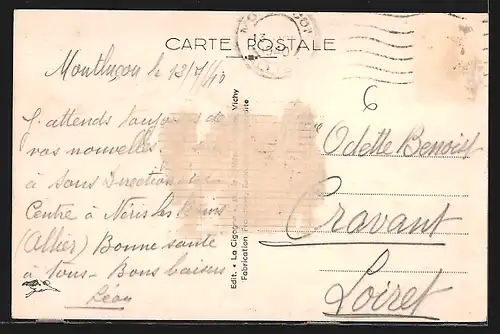 CARTE POSTALE
Montluçon le 13/7/40
J'attends toujours de
vos nouvelles
à Sous Direction
Centre à Néris les Bains
(Allier) Bonne santé
à tous - Bons baisers
Léon
6
Odette Benoist
Cravant
Loiret
Edit. « La Cigogne » Vichy
Fabrication